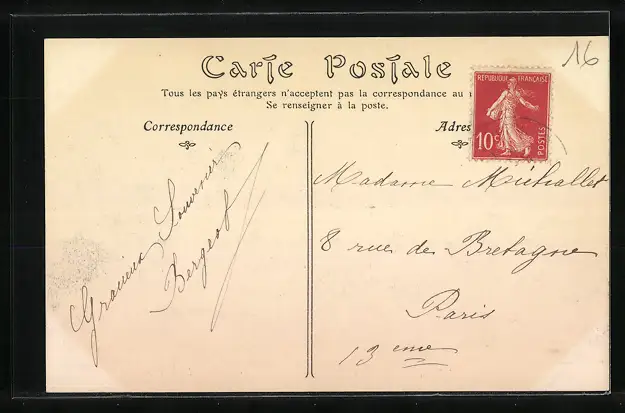 16
Carte Postale
Tous les pays étrangers n'acceptent pas la correspondance au
Se renseigner à la poste.
REPUBLIQUE FRANÇAISE
10c
POSTES
Correspondance
Gracieux Souvenir
Bergeot
Adres
Madame Michallet
8 rue de Bretagne
Paris
13 eme